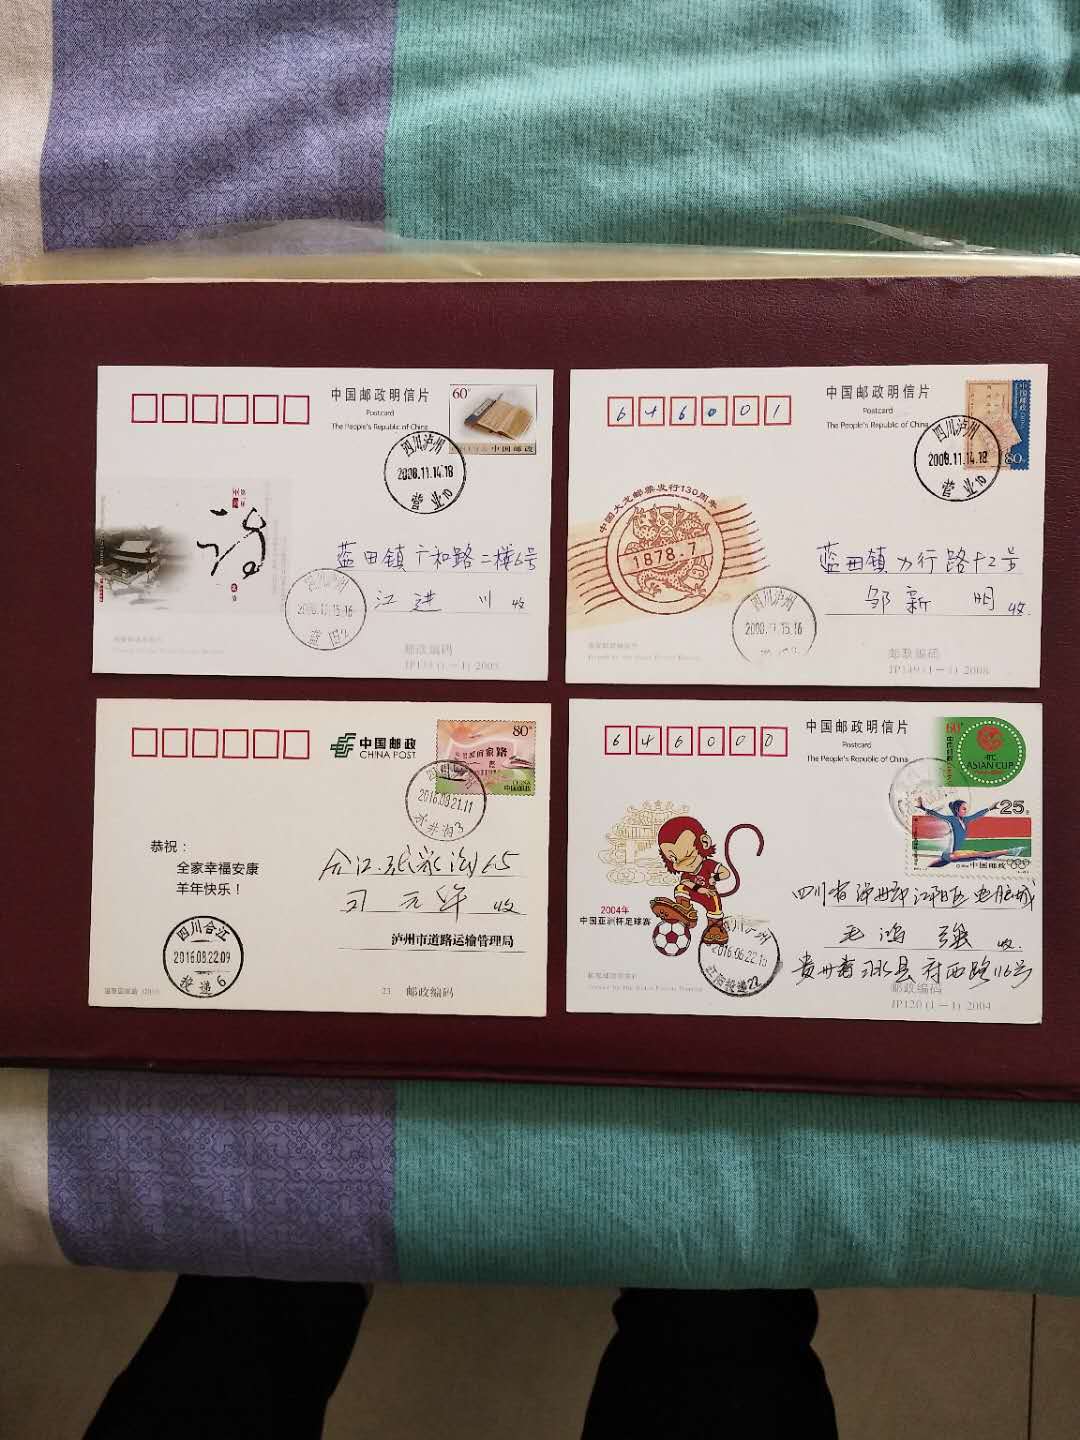 中国邮政明信片
Postcard
The People's Republic of China
60
中国邮政
四川泸州
2008.11.14.18
营业10
蓝田镇广和路二楼6号
江进川 收
四川泸州
蓝田2
邮政编码
646001
中国邮政明信片
Postcard
The People's Republic of China
中国邮政
80
四川泸州
2008.11.14.18
营业10
中国大龙邮票发行130周年
1878.7
蓝田镇力行路十2号
邹新明 收
四川泸州
邮政编码
JP149(1-1) 2008
中国邮政
CHINA POST
80
CHINA
中国邮政
2016.08.21.11
水井沟3
恭祝:
全家幸福安康
羊年快乐!
收
泸州市道路运输管理局
四川合江
2016.08.22.09
投递6
23 邮政编码
646000
中国邮政明信片
Postcard
The People's Republic of China
60
ASIAN CUP
25
中国邮政
2004年
中国亚洲杯足球赛
四川省泸州市江阳区电脑城
毛鸿强 收
贵州省习水县府西路116号
2016.06.22.15
江阳投递22
邮政编码
JP120(1-1) 2004